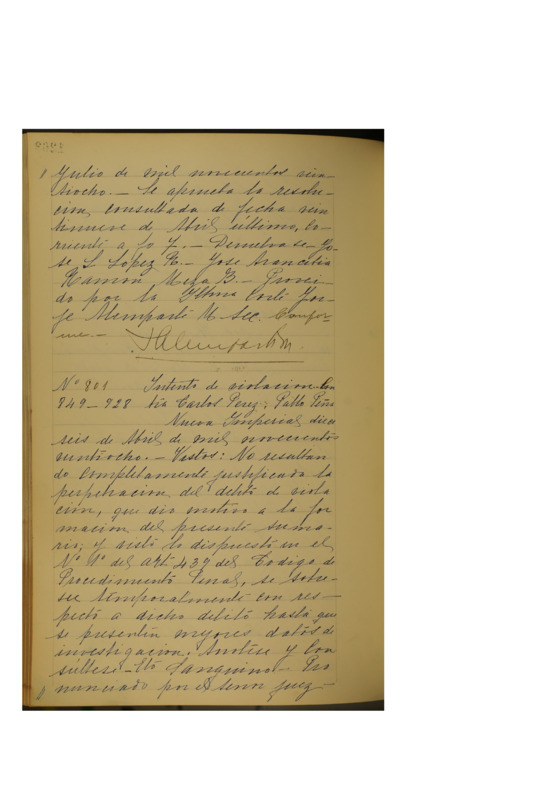 Julio de mil novecientos vein-
tiocho.— Se aprueba la resolu-
cion consultada de fecha vein
tinueve de Abril último, co-
rriente a fo 7.— Devuélvase.— Jo-
se L Lopez R.— Jose Arancibia
Ramon Meza B.— Provei-
do por la Iltma Corte Jor-
je Alemparte M Sec. Confor-
me.—
No 801 Intento de violacion Con
849–928 tra Carlos Perez; Pablo Peña
Nueva Imperial dieci
seis de Abril de mil novecientos
veintiocho.— Vistos: No resultan
do completamente justificada la
perpetracion del delito de viola
cion, que dio motivo a la for
macion del presente suma-
rio; y visto lo dispuesto en el
No 1o del art 437 del Codigo de
Procedimiento Penal, se sobre-
see temporalmente con res-
pecto a dicho delito hasta que
se presenten mejores datos de
investigacion. Anótese y Con
súltese.—
nunciado por el señor juez—